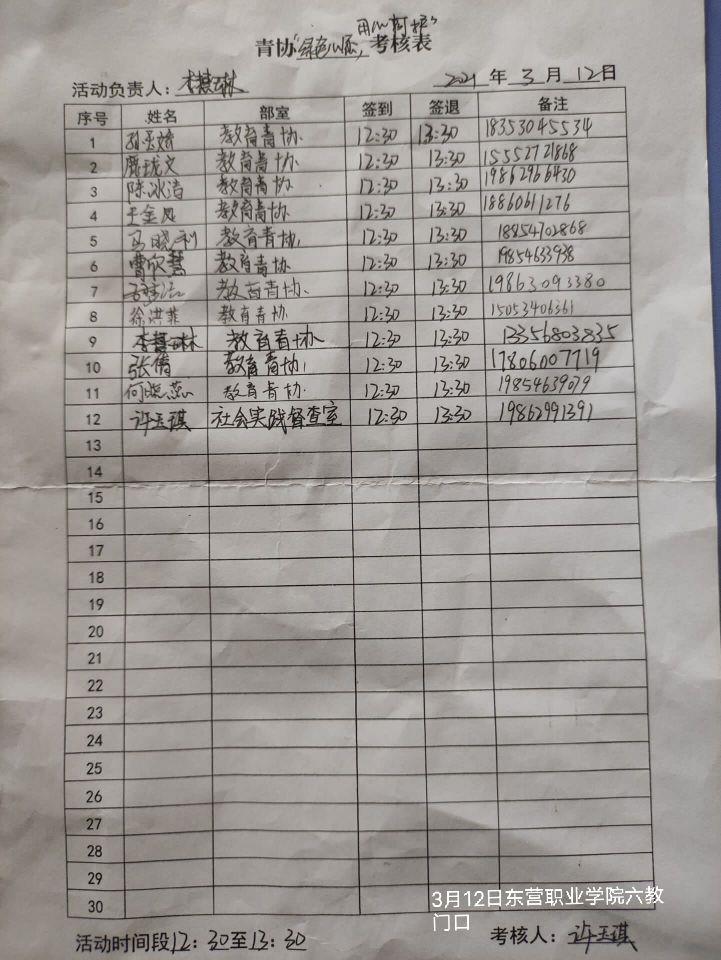 用心呵护"
青协"绿色心愿,考核表
活动负责人：李慧琳 2021 年 3 月 12 日
序号 姓名 部室 签到 签退 备注
1 教育青协 12:30 13:30 18353045534
2 教育青协 12:30 13:30 15552721868
3 陈冰洁 教育青协 12:30 13:30 19862966430
4 王金凤 教育青协 12:30 13:30 18860611276
5 马晓利 教育青协 12:30 13:30 18854702868
6 曹欣慧 教育青协 12:30 13:30 19854633938
7 教育青协 12:30 13:30 19863093380
8 徐洪菲 教育青协 12:30 13:30 15053406361
9 李慧琳 教育青协 12:30 13:30 13356803835
10 张倩 教育青协 12:30 13:30 17806007719
11 何晓燕 教育青协 12:30 13:30 19854639079
12 许玉琪 社会实践督查室 12:30 13:30 19862991391
13
14
15
16
17
18
19
20
21
22
23
24
25
26
27
28
29
30
3月12日东营职业学院六教
门口
活动时间段12：30至13：30 考核人：许玉琪